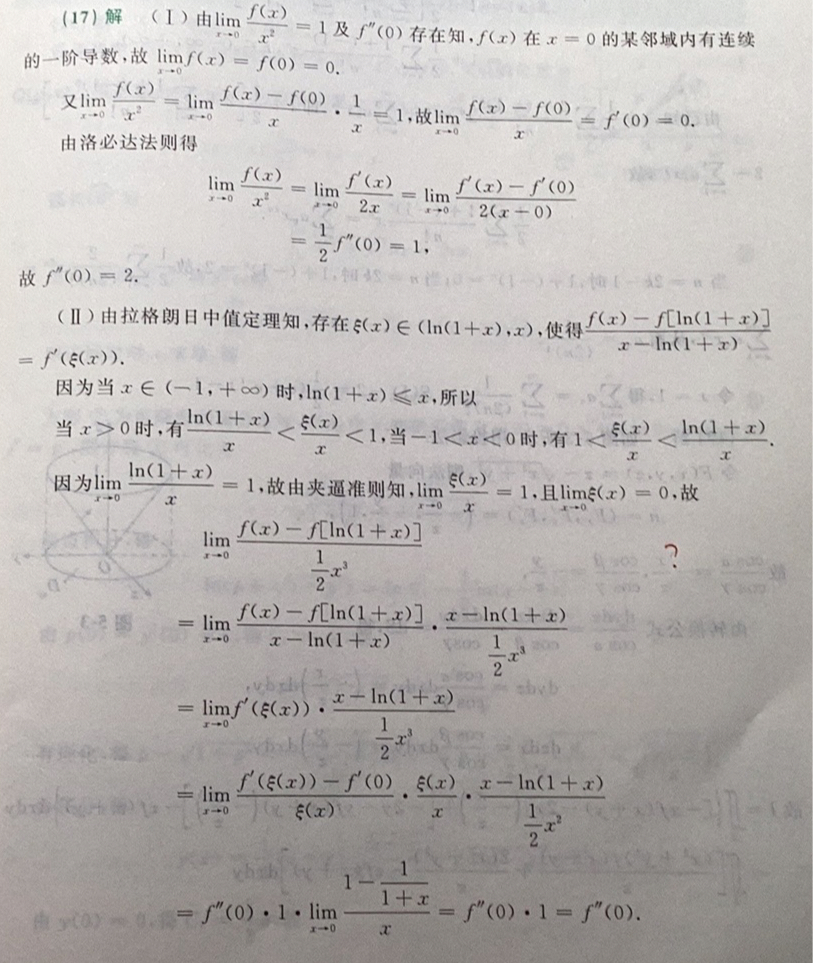 (17) 解 (Ⅰ) 由 lim_{x→0} f(x)/x² = 1 及 f″(0) 存在知, f(x) 在 x = 0 的某邻域内有连续
的一阶导数,故 lim_{x→0} f(x) = f(0) = 0.
又 lim_{x→0} f(x)/x² = lim_{x→0} (f(x) − f(0))/x · 1/x = 1,故 lim_{x→0} (f(x) − f(0))/x = f′(0) = 0.
由洛必达法则得
lim_{x→0} f(x)/x² = lim_{x→0} f′(x)/2x = lim_{x→0} (f′(x) − f′(0))/(2(x − 0))
= 1/2 f″(0) = 1,
故 f″(0) = 2.
(Ⅱ) 由拉格朗日中值定理知,存在 ξ(x) ∈ (ln(1+x), x),使得 (f(x) − f[ln(1+x)])/(x − ln(1+x))
= f′(ξ(x)).
因为当 x ∈ (−1, +∞) 时, ln(1+x) ⩽ x,所以
当 x > 0 时,有 ln(1+x)/x < ξ(x)/x < 1,当 −1 < x < 0 时,有 1 < ξ(x)/x < ln(1+x)/x.
因为 lim_{x→0} ln(1+x)/x = 1,故由夹逼准则知, lim_{x→0} ξ(x)/x = 1,且 lim_{x→0} ξ(x) = 0,故
lim_{x→0} (f(x) − f[ln(1+x)])/(1/2 x³) ?
= lim_{x→0} (f(x) − f[ln(1+x)])/(x − ln(1+x)) · (x − ln(1+x))/(1/2 x³)
= lim_{x→0} f′(ξ(x)) · (x − ln(1+x))/(1/2 x³)
= lim_{x→0} (f′(ξ(x)) − f′(0))/ξ(x) · ξ(x)/x · (x − ln(1+x))/(1/2 x²)
= f″(0) · 1 · lim_{x→0} (1 − 1/(1+x))/x = f″(0) · 1 = f″(0).